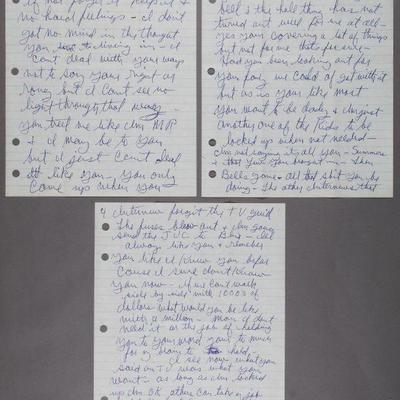 no hard feelings - I don't
got no mind in the thought
you, moving in - I
can't deal with your ways
not to say your right or
rong but I can't see no
light through that way -
you treel me like im MR
& I may be to you
but I just can't deal
like you - you only
come up when you
Bell & the hell thing has not
turned out well for me at all -
yes your covering a lot of things
but not for me thats for sure -
Had you been looking out for
your pay we could of get with it
but as is your like most
you want to be dady & im just
another one of the Kids to be
locked up when not needed
im not saying it all you - Summers
& that you brought in - then
Bells gone - all that shit you be
doing - The other interviews that
4 interview forgot the TV guid
The fuses blow out & im going
send the JVC to Bens - ill
always like you & remember
you like I knew you before
cause I sure dont know
you now - if we can't walk
side by side with 10000 of
dollars what would you be like
with a million - man I dont
need it or the job of holding
you to your word your to much
for my brain to hold -
I see now what you
said on TV was what you
want - as long as im locked
up im OK other can take a job